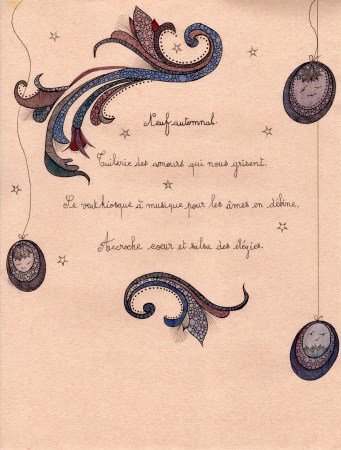 Neuf automnal.
Tuilerie des amours qui nous grisent.
Se veut kiosque à musique pour les âmes en débine,
Accroche cœur et salsa des élégies.